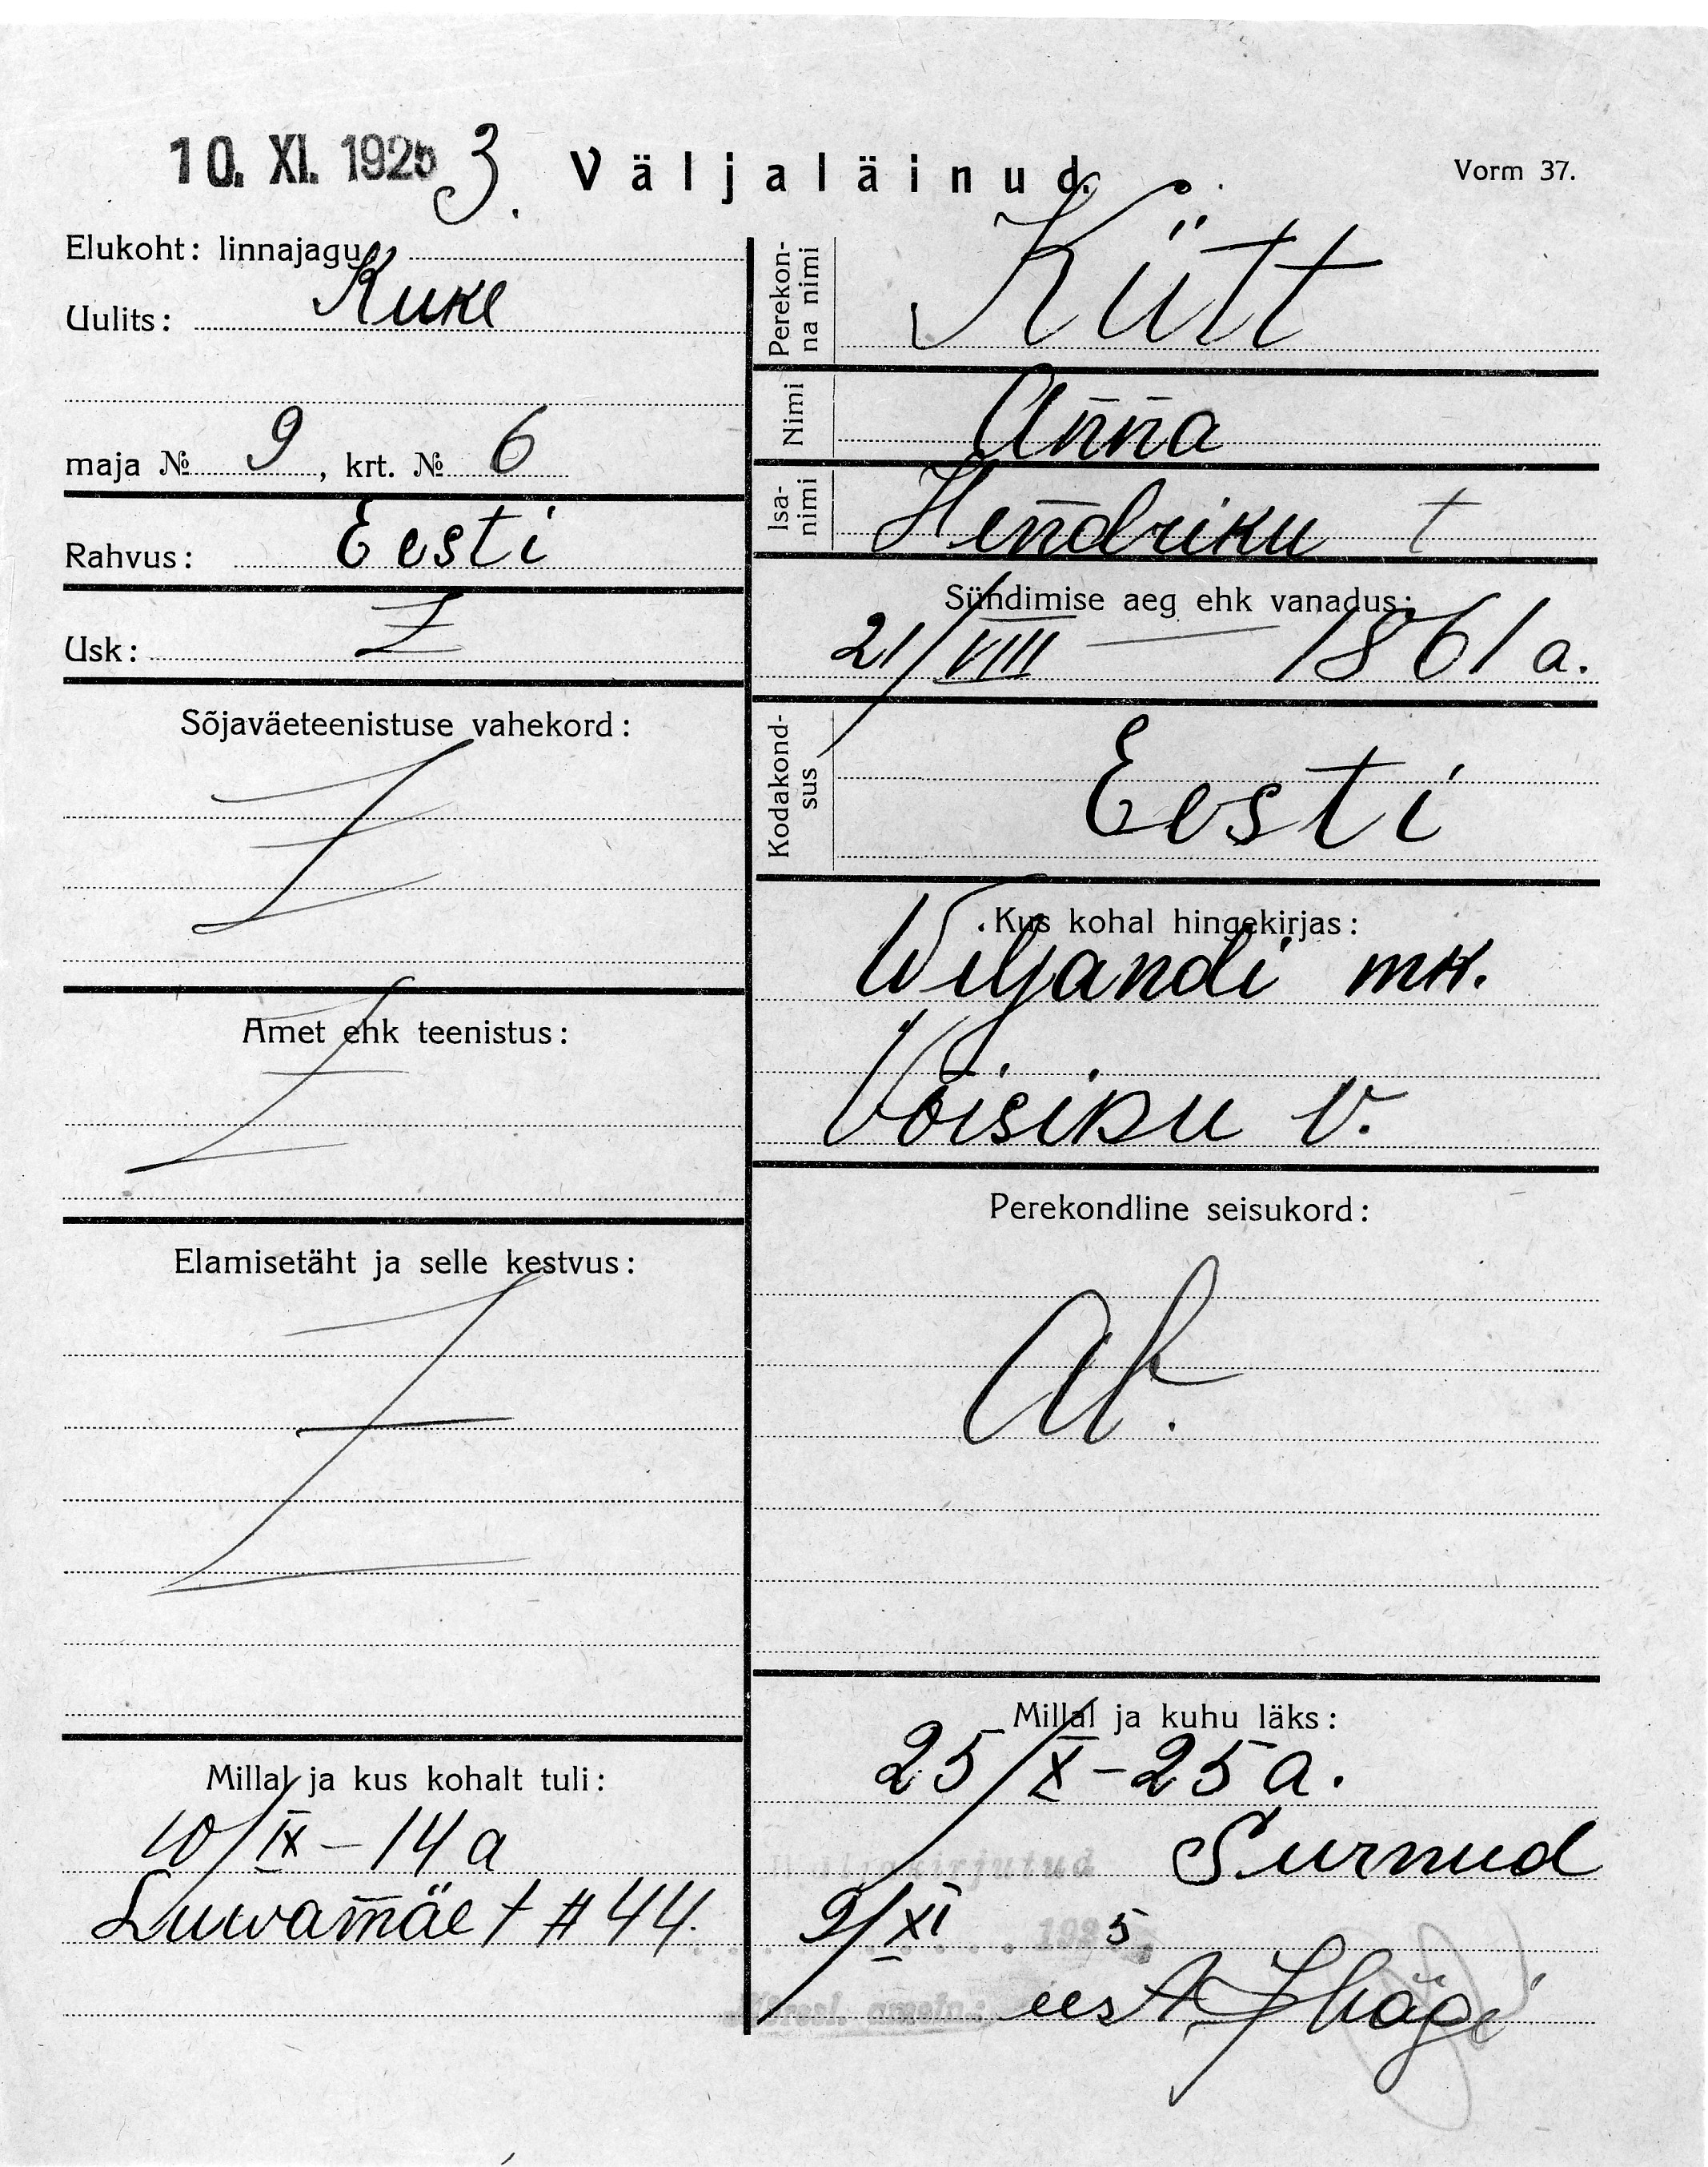 10. XI. 1925 3.
Väljaläinud.
Vorm 37.
Elukoht: linnajagu
Uulits: Kuke
maja № 9, krt. № 6
Rahvus: Eesti
Usk:
Sõjaväeteenistuse vahekord:
Amet ehk teenistus:
Elamisetäht ja selle kestvus:
Millal ja kus kohalt tuli:
10/IX – 14 a
Luwamäe t # 44.
Perekon-
na nimi
Kütt
Nimi
Anna
Isa-
nimi
Hendriku †
Sündimise aeg ehk vanadus:
21/VIII — 1861 a.
Kodakond-
sus
Eesti
Kus kohal hingekirjas:
Wiljandi mk.
Võisiku v.
Perekondline seisukord:
Ab.
Millal ja kuhu läks:
25/X – 25 a.
Surnud
Väljakirjutud
9/XI 1925